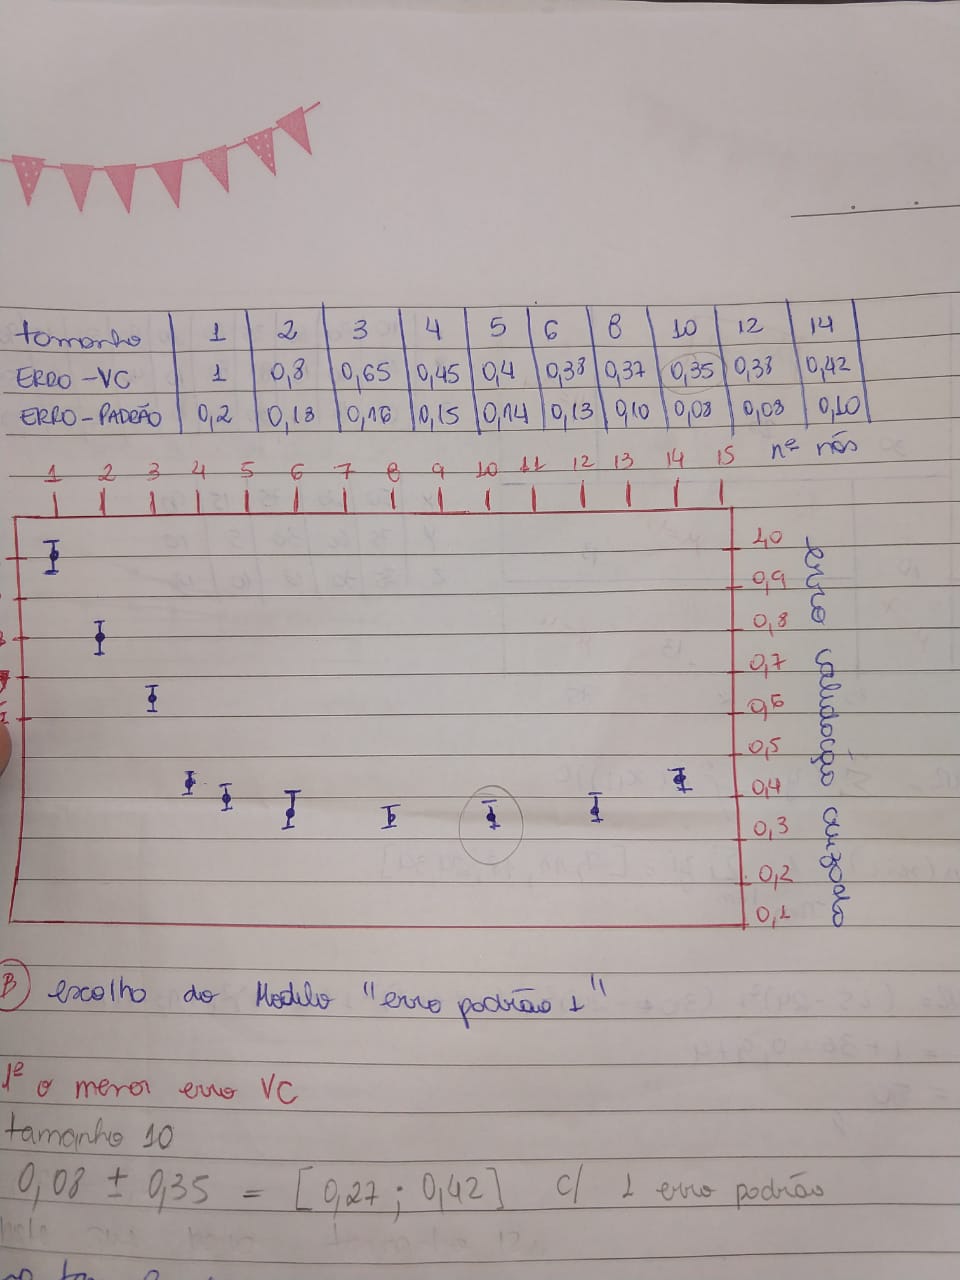 tamanho 1 2 3 4 5 6 8 10 12 14
ERRO-VC 1 0,8 0,65 0,45 0,4 0,38 0,37 0,35 0,38 0,42
ERRO-PADRÃO 0,2 0,18 0,16 0,15 0,14 0,13 0,10 0,08 0,08 0,10
1 2 3 4 5 6 7 8 9 10 11 12 13 14 15 nº nós
1,0
0,9
0,8
0,7
0,6
0,5
0,4
0,3
0,2
0,1
erro validação cruzada
B escolha do Modelo "erro padrão 1"
1º o menor erro VC
tamanho 10
0,08 ± 0,35 = [0,27 ; 0,42] c/ 1 erro padrão